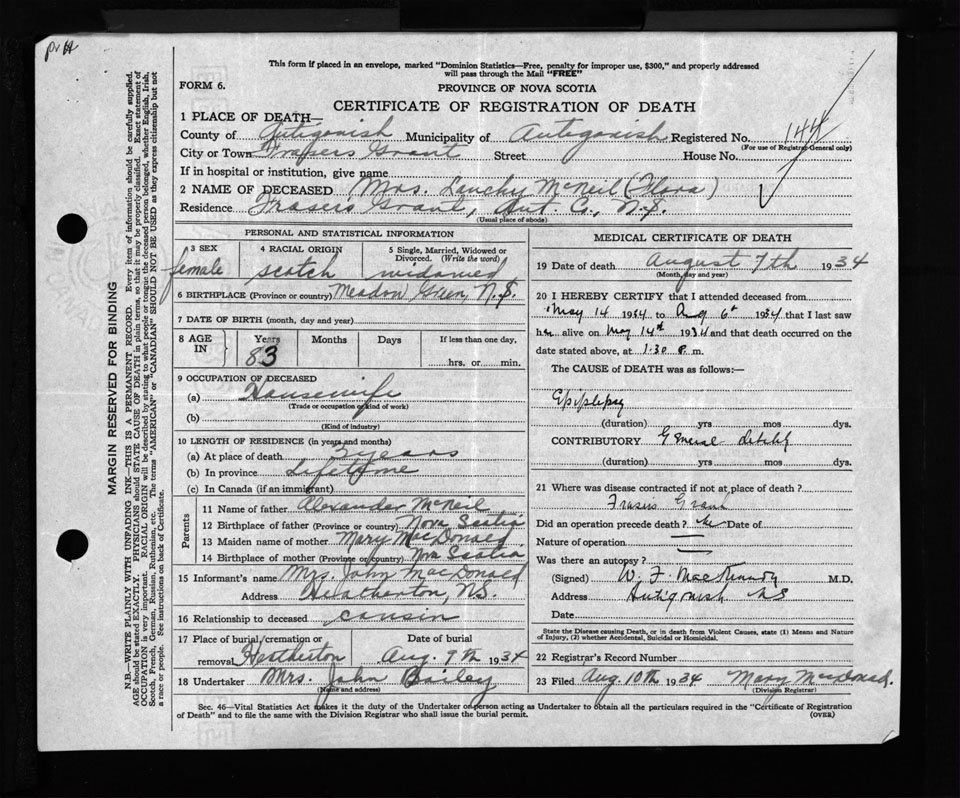 This form if placed in an envelope, marked "Dominion Statistics—Free, penalty for improper use, $300," and properly addressed
will pass through the Mail "FREE"
FORM 6.
PROVINCE OF NOVA SCOTIA
CERTIFICATE OF REGISTRATION OF DEATH
1 PLACE OF DEATH—
County of Antigonish Municipality of Antigonish Registered No. 144
(For use of Registrar General only)
City or Town Frasers Grant Street House No.
If in hospital or institution, give name
2 NAME OF DECEASED Mrs. Lauchy McNeil (Flora)
Residence Frasers Grant, Ant. Co., N.S.
(Usual place of abode)
PERSONAL AND STATISTICAL INFORMATION
3 SEX 4 RACIAL ORIGIN 5 Single, Married, Widowed or
Divorced. (Write the word)
female scotch widowed
6 BIRTHPLACE (Province or country) Meadow Green, N.S.
7 DATE OF BIRTH (month, day and year)
8 AGE IN Years Months Days If less than one day,
83 hrs. or min.
9 OCCUPATION OF DECEASED
(a) Housewife
(Trade or occupation or kind of work)
(b)
(Kind of industry)
10 LENGTH OF RESIDENCE (in years and months)
(a) At place of death 3 years
(b) In province Lifetime
(c) In Canada (if an immigrant)
Parents
11 Name of father Alexander McNeil
12 Birthplace of father (Province or country) Nova Scotia
13 Maiden name of mother Mary MacDonald
14 Birthplace of mother (Province or country) Nova Scotia
15 Informant's name Mrs. John MacDonald
Address Heatherton, N.S.
16 Relationship to deceased cousin
17 Place of burial, cremation or Date of burial
removal Heatherton Aug. 9th 1934
18 Undertaker Mrs. John Bailey
(Name and address)
MEDICAL CERTIFICATE OF DEATH
19 Date of death August 7th 1934
(Month, day and year)
20 I HEREBY CERTIFY that I attended deceased from
May 14 1934 to Aug 6th 1934 that I last saw
her alive on May 14th 1934 and that death occurred on the
date stated above, at 1.30 P. m.
The CAUSE of DEATH was as follows:—
(duration) yrs mos dys.
CONTRIBUTORY General Debility
(duration) yrs. mos. dys.
21 Where was disease contracted if not at place of death?
Frasers Grant
Did an operation precede death? No Date of
Nature of operation
Was there an autopsy?
(Signed) W. F. MacKinnon M.D.
Address Antigonish NS
Date
State the Disease causing Death, or in death from Violent Causes, state (1) Means and Nature
of Injury, (2) whether Accidental, Suicidal or Homicidal.
22 Registrar's Record Number
23 Filed Aug 10th 1934 Mary MacDonald.
(Division Registrar)
Sec. 46—Vital Statistics Act makes it the duty of the Undertaker or person acting as Undertaker to obtain all the particulars required in the "Certificate of Registration
of Death" and to file the same with the Division Registrar who shall issue the burial permit. (OVER)
MARGIN RESERVED FOR BINDING
N.B.—WRITE PLAINLY WITH UNFADING INK—THIS IS A PERMANENT RECORD. Every item of information should be carefully supplied.
AGE should be stated EXACTLY. PHYSICIANS should STATE CAUSE OF DEATH in plain terms, so that it may be properly classified. Exact statement of
OCCUPATION is very important. RACIAL ORIGIN will be described by stating to what people or tongue the deceased person belonged, whether English, Irish,
Scotch, French, German, Russian, Ruthenian, etc. The terms "AMERICAN" or "CANADIAN" SHOULD NOT BE USED as they express citizenship but not
a race or people. See instructions on back of Certificate.